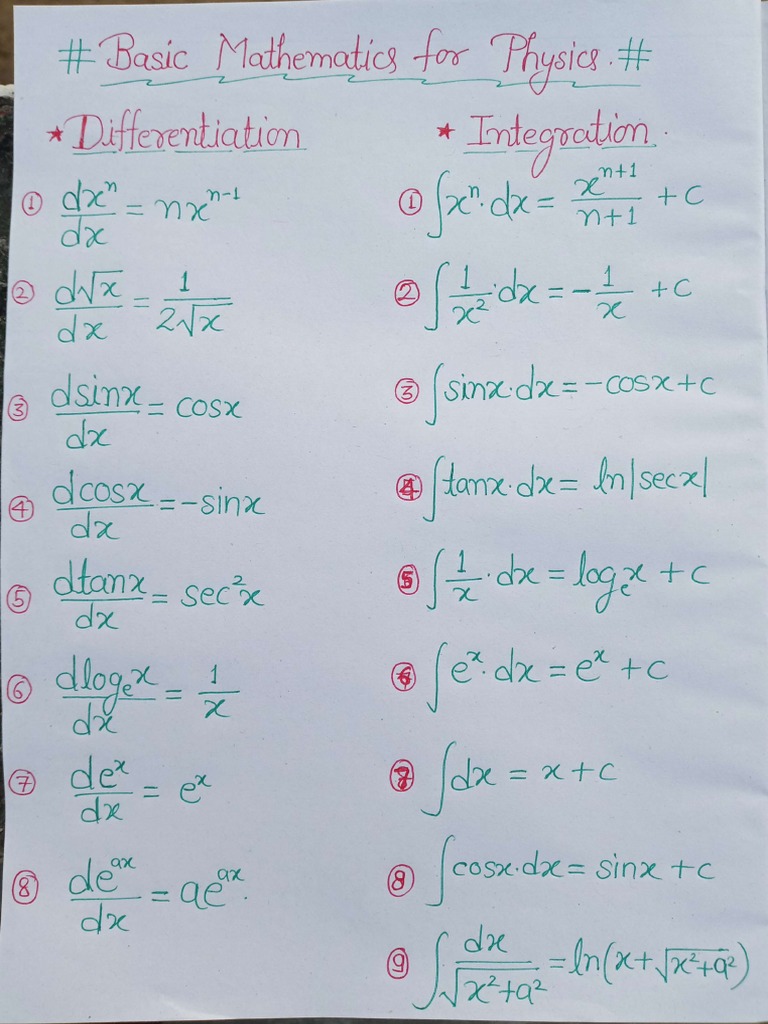 # Basic Mathematics for Physics. #
★ Differentiation
① dxⁿ/dx = nxⁿ⁻¹
② d√x/dx = 1/2√x
③ dsinx/dx = cosx
④ dcosx/dx = -sinx
⑤ dtanx/dx = sec²x
⑥ dlogₑx/dx = 1/x
⑦ deˣ/dx = eˣ
⑧ deᵃˣ/dx = aeᵃˣ.
★ Integration.
① ∫xⁿ·dx = xⁿ⁺¹/n+1 + c
② ∫1/x²·dx = -1/x + c
③ ∫sinx·dx = -cosx + c
④ ∫tanx·dx = ln|secx|
⑤ ∫1/x·dx = logₑx + c
⑥ ∫eˣ·dx = eˣ + c
⑦ ∫dx = x + c
⑧ ∫cosx·dx = sinx + c
⑨ ∫dx/√x²+a² = ln(x+√x²+a²)